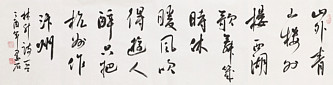 山外青
山楼外
楼西湖
歌舞几
时休
暖风吹
得遊人
醉只把
杭州作
汴州
林升诗